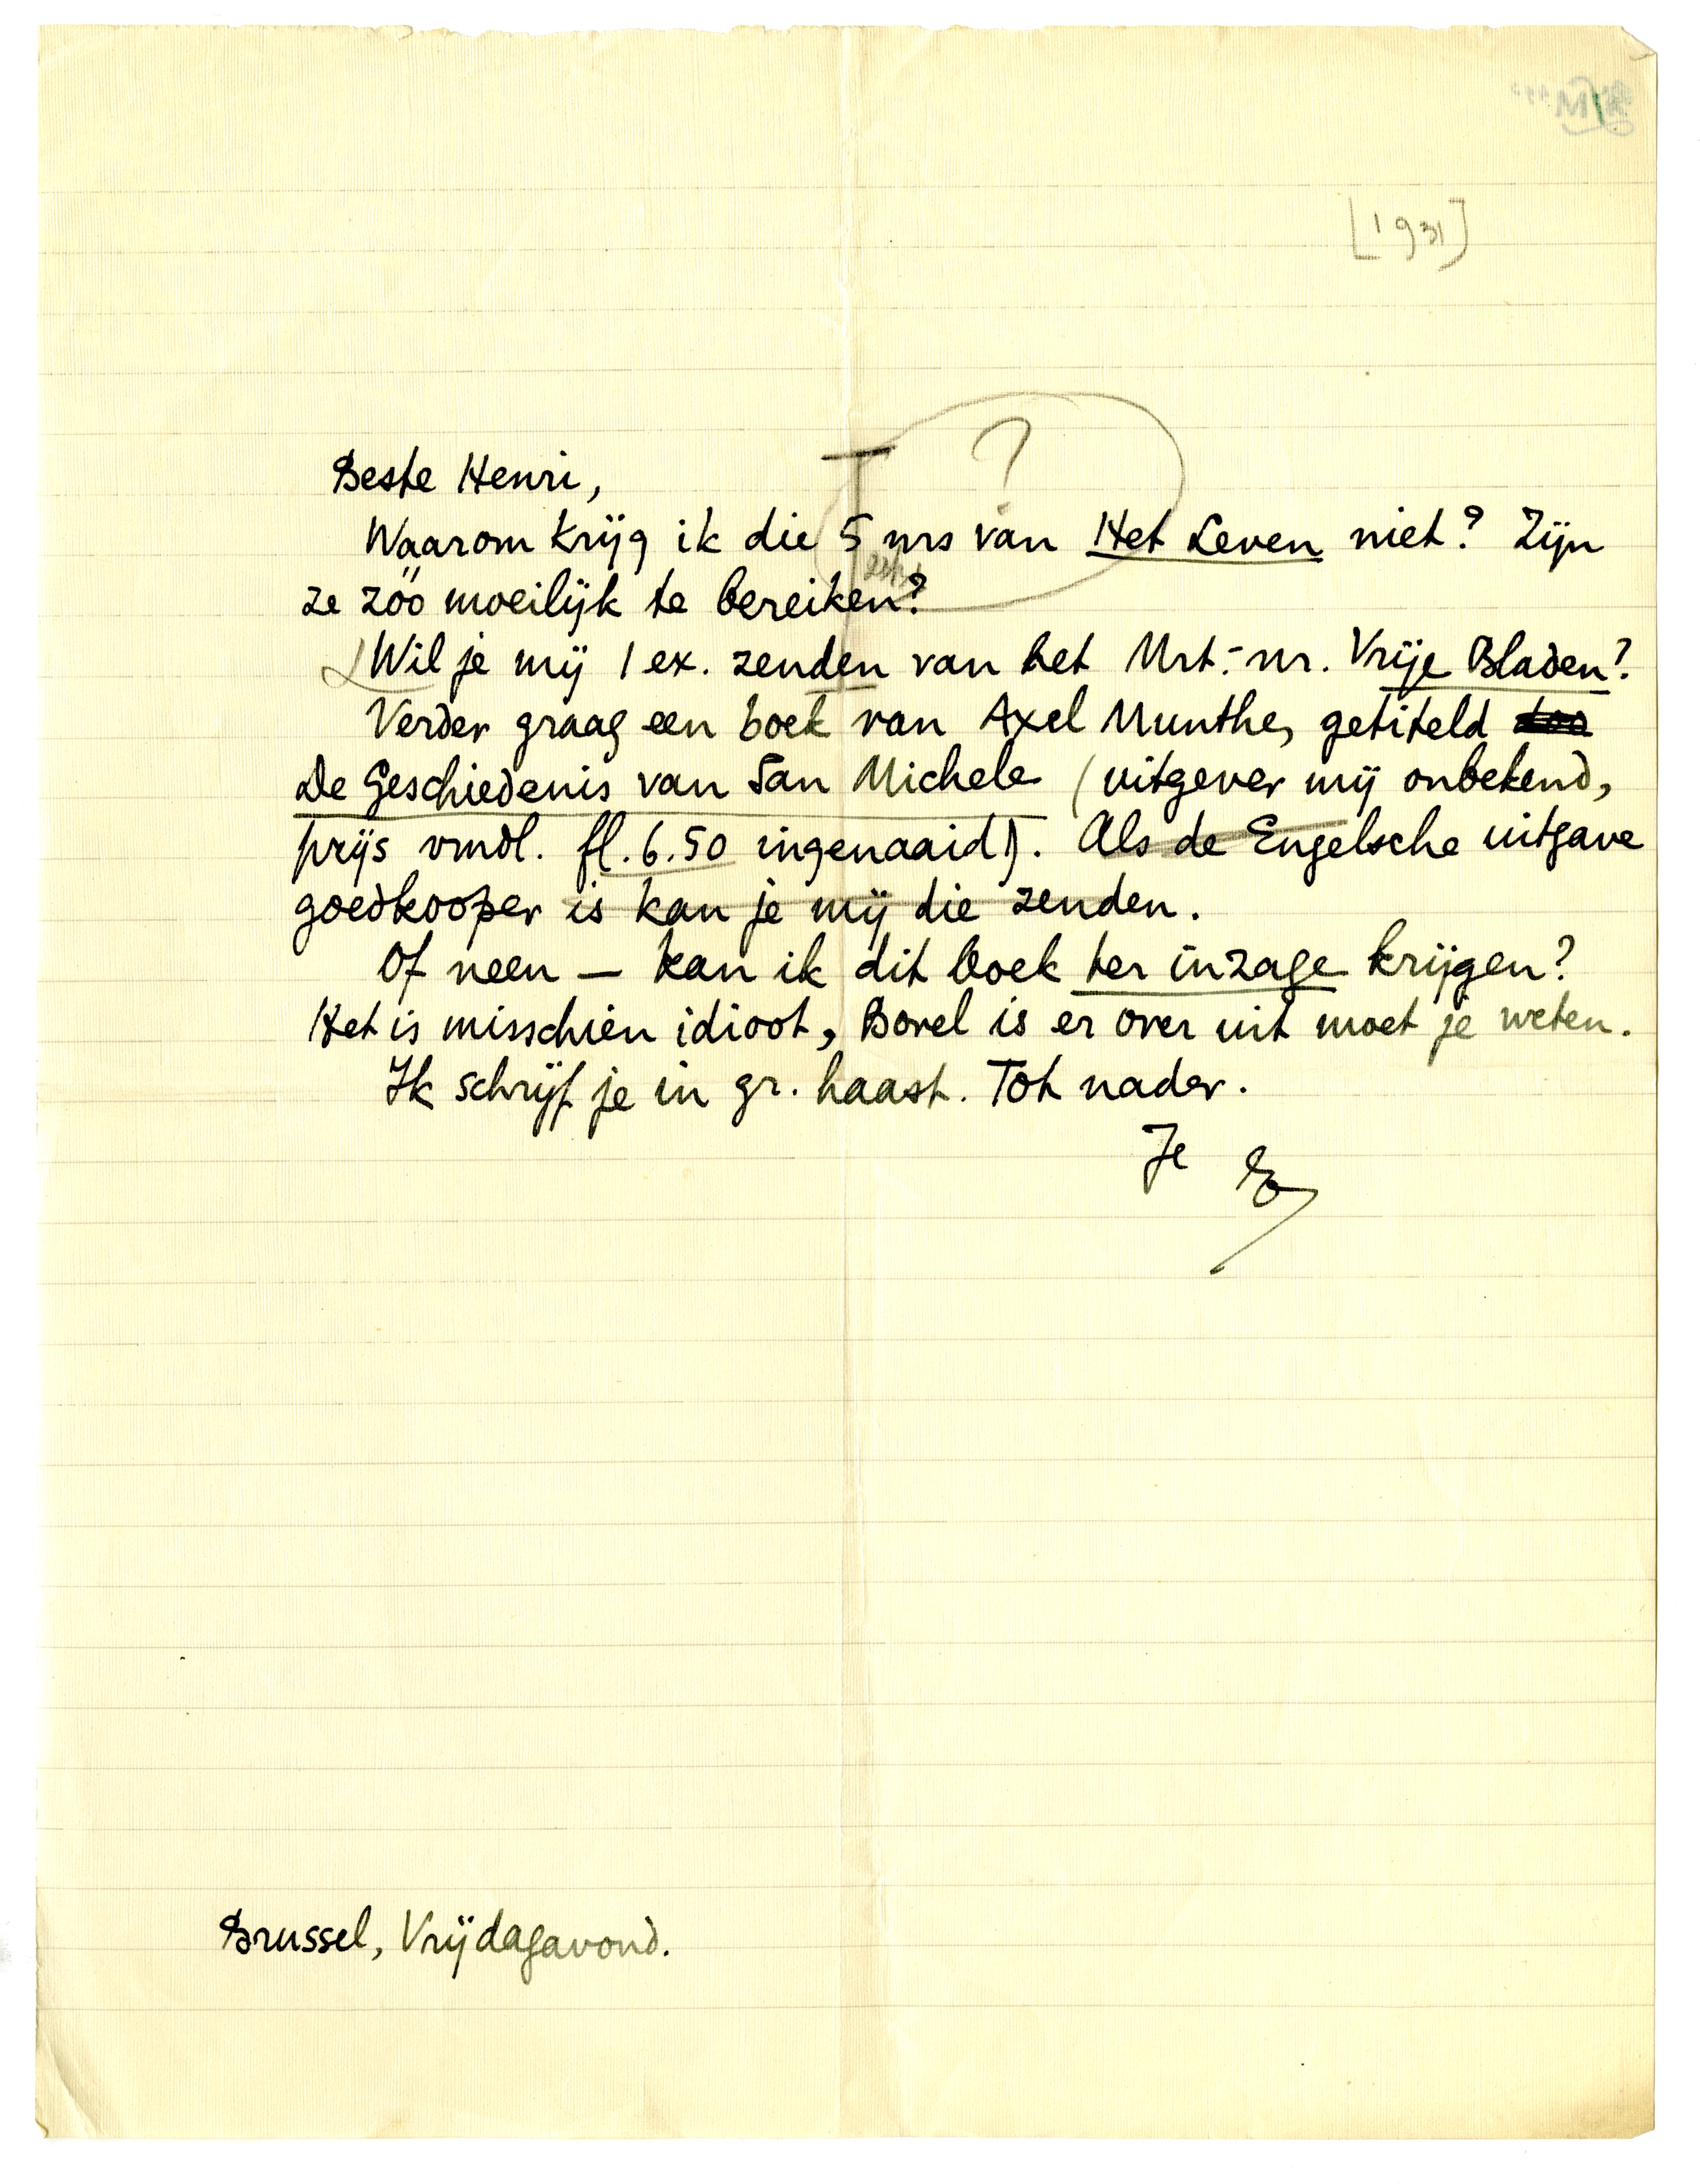 [1931]
?
Beste Henri,
Waarom krijg ik die 5 nrs van Het Leven niet? Zijn
ze zóó moeilijk te bereiken?
Wil je mij 1 ex. zenden van het Mrt.-nr. Vrije Bladen?
Verder graag een boek van Axel Munthe, getiteld
De Geschiedenis van San Michele (uitgever mij onbekend,
prijs vmdl. fl. 6.50 ingenaaid). Als de Engelsche uitgave
goedkooper is kan je mij die zenden.
Of neen — kan ik dit boek ter inzage krijgen?
Het is misschien idioot, Borel is er over uit moet je weten.
Ik schrijf je in gr. haast. Tot nader.
Je E
Brussel, Vrijdagavond.